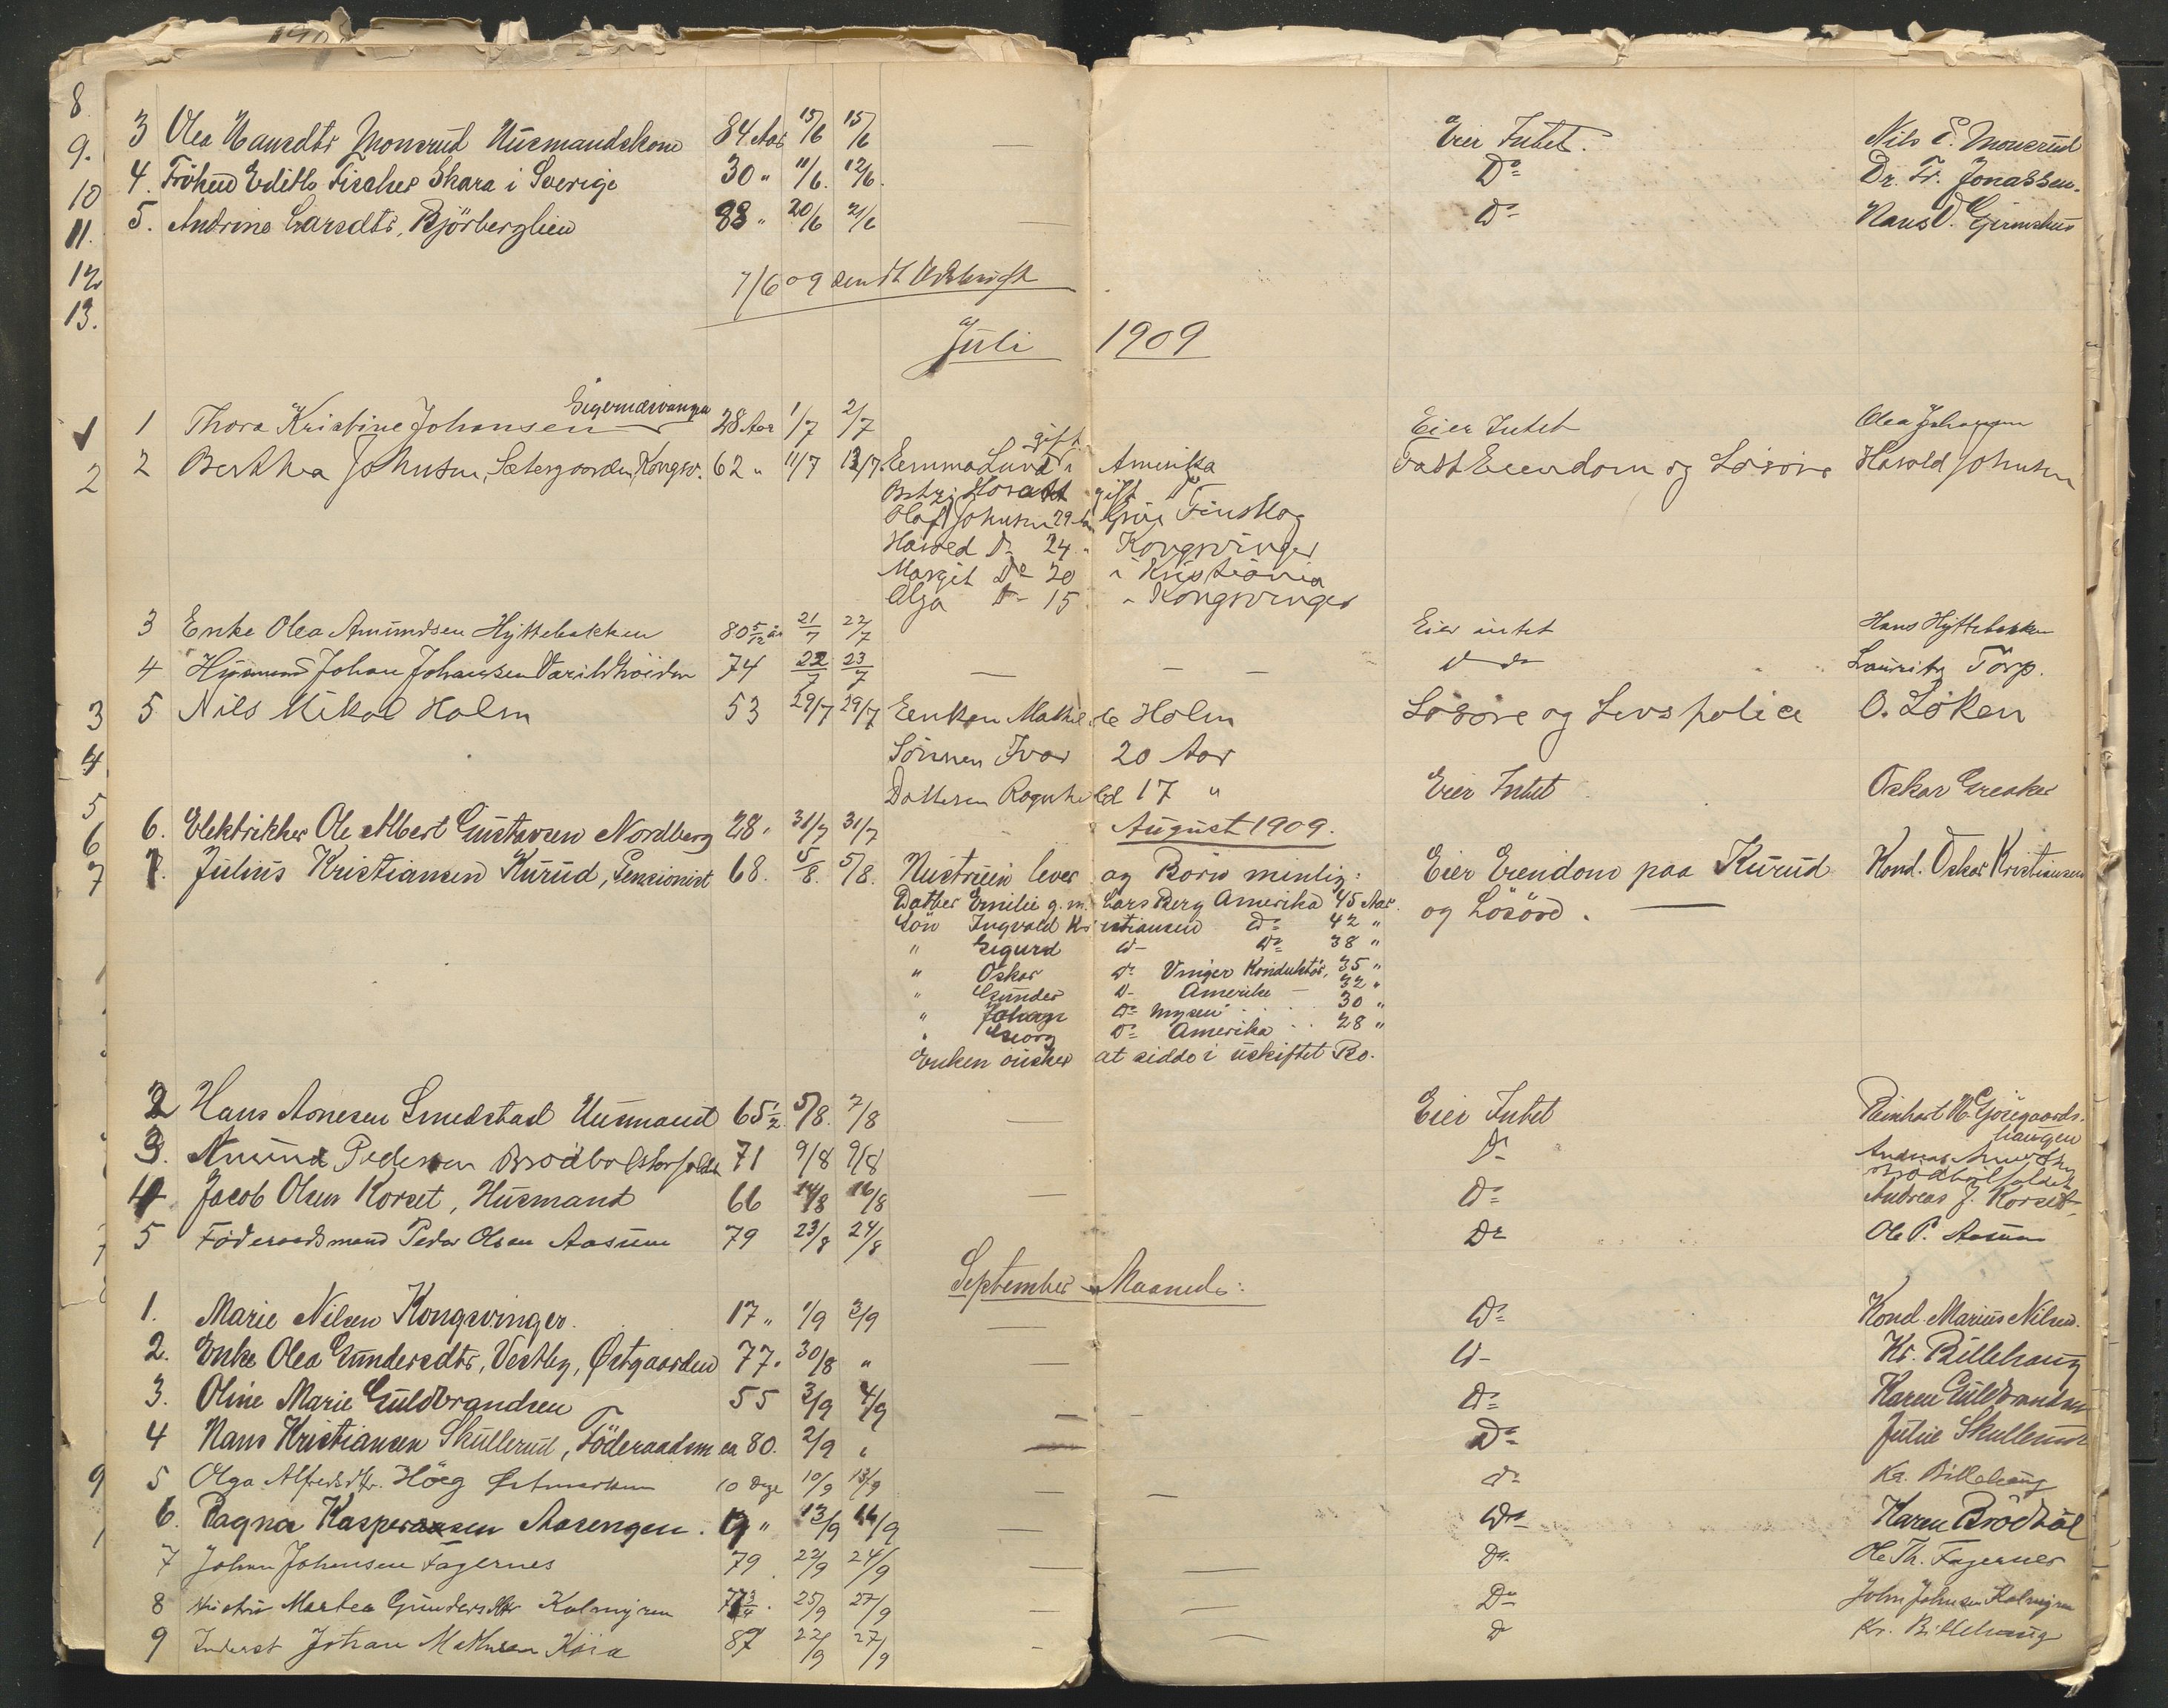 8
9.
10
11.
12
13.
3 Olea Hansdtr Monsrud Husmandskone 84 Aar 15/6 15/6 — Eier Intet. Nils E. Monsrud
4. Fröken Edith Fischer Skara i Sverige 30 " 11/6. 12/6. Do Dr. Fr. Jonassen.
5. Andrine Larsdtr, Björberglien 88 " 20/6 21/6 — Do Hans O. Gjermshus
7/6 09 sendt Udskrift
Juli 1909
Sigernæsvangen
1 1 Thora Kristine Johansen 28 Aar 1/7 2/7 Eier Intet Olea Johansen
gift
2 2 Berthea Johnsen, Sætergaarden, Kongsv. 62 " 11/7 13/7 Emma Lund i Amerika Fast Eiendom og Lösöre Harold Johnsen
gift Do
Olaf Johnsen 29 Aar Grue Finskog
Harold Do 24 " Kongsvinger
Margit Do 20 i Kristiania
Olga Do 15 " Kongsvinger
3 Enke Olea Amundsen Hyttebakken 80 5/12 år 21/7 22/7 Eier intet Hans Hyttebakken
4 Husmand Johan Johansen Varildskoiden 74 22/7 23/7 — — — Do Lauritz Torp.
3 5 Nils Mikal Holm 53 29/7 29/7 Enken Mathilde Holm Lösöre og Livspolice O. Löken
4 Sönnen Ivar 20 Aar
5 Datteren Ragnhild 17 " Eier Intet Oskar Greaker
6 6. Elektriker Ole Albert Gustavsen Nordberg 28 " 31/7 31/7 August 1909.
7 1. Julius Kristiansen Kurud, Pensionist 68. 5/8. 5/8. Hustruen lever og Börn minlig: Eier Eiendom paa Kurud Kond. Oskar Kristiansen
Datter Emilie g. m. Lars Berg Amerika 45 Aar. og Lösöre. —
Sön Ingvald Kristiansen Do 42 "
" Sigurd Do Do 38 "
" Oskar Do Vinger Konduktör, 35 "
" Gunder Do Amerika — 32 "
" Johan Do Mysen . . . 30 "
" Georg Do Amerika . . 28 "
Enken önsker at sidde i uskiftet Bo.
2 Hans Arnesen Smedstad Husmand 65 1/2. 5/8. 7/8 — Eier Intet Reinhart H. Gjöregaards-
haugen
3. Amund Pedersen 71 9/8 9/8 Do Andreas
4 Jacob Olsen Korset, Husmand 66 14/8 16/8 — Do Andreas J. Korset
5 Föderaadsmand Peder Olsen Aasum 79 23/8 24/8 Do Ole P. Aasum
September Maaned:
1. Marie Nilsen Kongsvinger. 17 " 1/9 3/9 — Do Kond. Marius Nilsen.
2. Enke Olea Gundersdtr, Vestby, Østgaarden 77 " 30/8 " — Do Kr. Billehaug
3. Oline Marie Guldbrandsen 55 3/9 4/9 — — Do Karen Guldbrandsen
4 Hans Kristiansen Skullerud, Föderaadsm ca 80. 2/9 " — Do Julie Skullerud
9 5 Olga Alfredsdtr. Höeg Østmarken 10 Dage 10/9 13/9 — — Do Kr. Billehaug
6. Ragna Kaspersen Aasengen. 9 " 13/9 16/9 Do Karen Brödböl
7 Johan Johansen Fagernes 79 22/9 24/9 — — Do Ole Th. Fagernes
8 Hustru Marthea Gundersdtr Kalmyren 77 3/4. 25/9 27/9 — — Do John Johnsen Kalmyren
9 Inderst Johan Mathisen Koia 87 22/9 27/9 — — D Kr. Billehaug